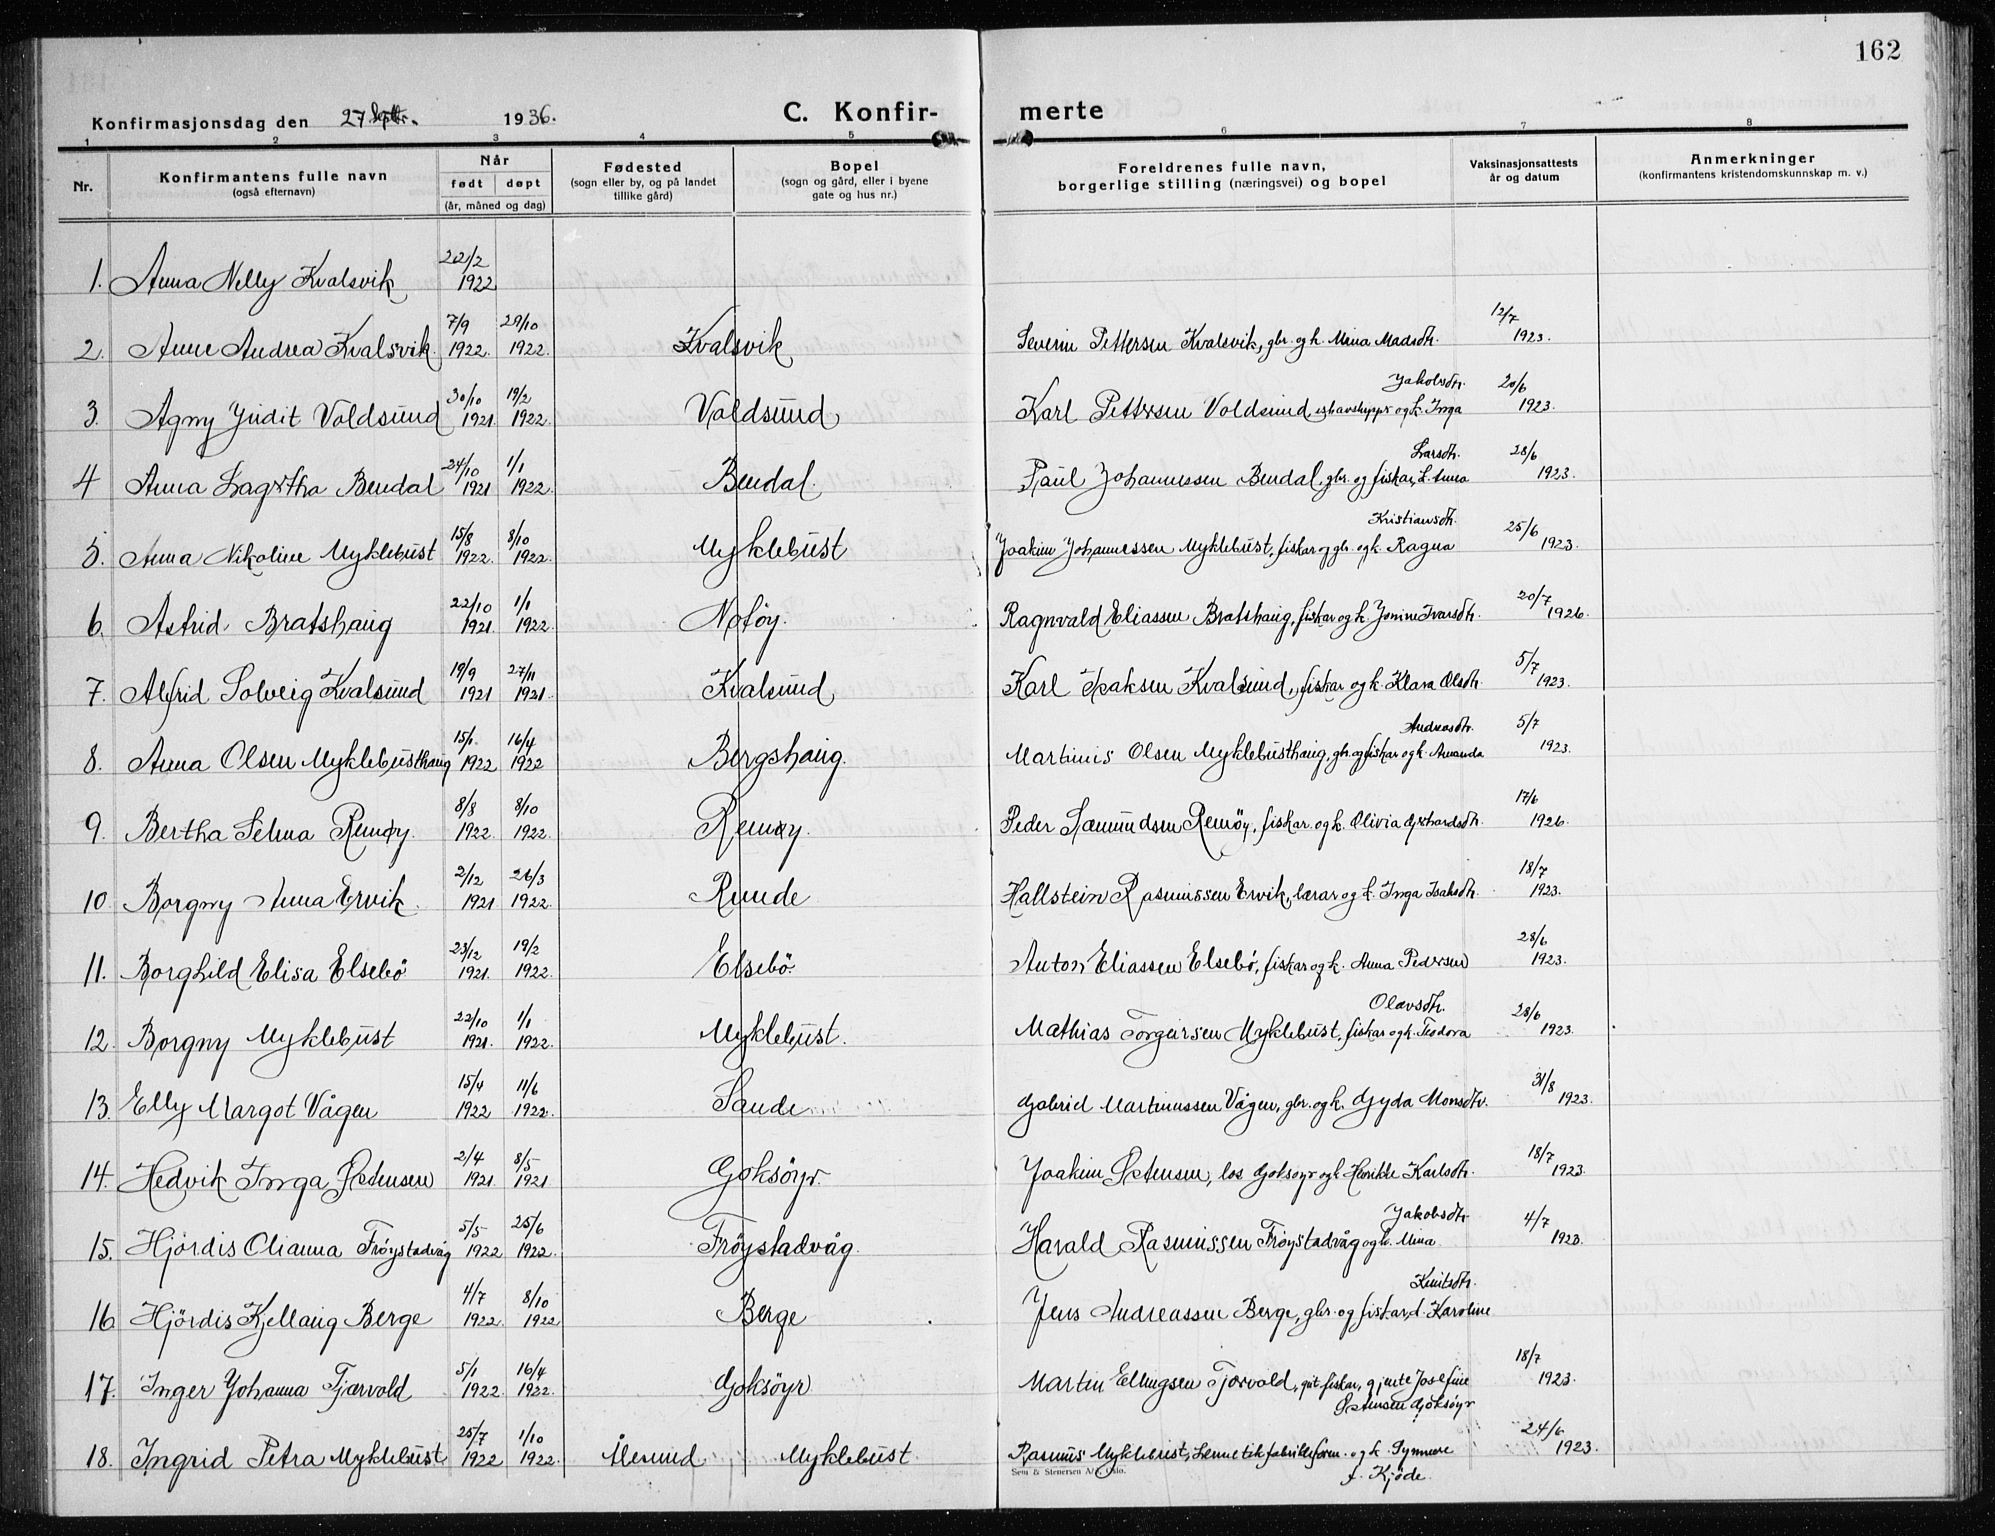 162
Konfirmasjonsdag den 27 Septbr. 1936.
C. Konfir- merte
1 2 3 4 5 6 7 8
Nr.
Konfirmantens fulle navn
(også efternavn)
Når
født døpt
(år, måned og dag)
Fødested
(sogn eller by, og på landet
tillike gård)
Bopel
(sogn og gård, eller i byene
gate og hus nr.)
Foreldrenes fulle navn,
borgerlige stilling (næringsvei) og bopel
Vaksinasjonsattests
år og datum
Anmerkninger
(konfirmantens kristendomskunnskap m. v.)
1. Anna Nelly Kvalsvik 1922
2. Anne Andrea Kvalsvik. 7/9 1922. 29/10 1922. Kvalsvik Severin Pettersen Kvalsvik, gbr. og k. Mina Madsdtr. 12/7 1923.
3. Agny Judit Voldsund 30/10 1921. 19/2 1922. Voldsund Karl Pettersen Voldsund ishavsskippr og k. Inga Jakobsdtr. 20/6 1923.
4 Anna Lagertha Bendal 24/10 1921 1/1 1922. Bendal. Paul Johannessen Bendal, gbr. og fiskar, k. Anna Larsdtr. 28/6 1923.
5. Anna Nikoline Myklebust 15/8 1922. 8/10 1922. Myklebust Joakim Johannessen Myklebust, fiskar og gbr. og k. Ragna Kristiansdtr. 25/6 1923.
6. Astrid Bratshaug 22/10 1921. 1/1 1922. Notøy. Ragnvald Eliassen Bratshaug, fiskar og k. Jonine Ivarsdtr. 20/7 1926.
7. Alfrid Solveig Kvalsund 19/9 1921 27/11 1921. Kvalsund Karl Isaksen Kvalsund, fiskar og k. Klara Olsdtr. 5/7 1923.
8. Anna Olsen Myklebusthaug 15/1. 1922 16/4 1922 Bergshaug. Martinus Olsen Myklebusthaug, gbr. og fiskar og k. Amanda Andreasdtr. 5/7 1923.
9. Bertha Selma Remøy. 8/8 1922. 8/10 1922. Remøy Peder Sæmundsen Remöy, fiskar. og k. Olivia Gerhardsdtr. 17/6 1926.
10. Borgny Anna Ervik. 2/12 1921 26/3 1922. Runde Hallstein Rasmussen Ervik, lærar og k. Inga Isaksdtr. 18/7 1923.
11. Borghild Elisa Elsebö 23/12 1921. 19/2 1922. Elsebö. Anton Eliassen Elsebö, fiskar og k. Anna Pedersen 28/6 1923.
12. Borgny Myklebust 22/10 1921. 1/1 1922. Myklebust. Mathias Torgersen Myklebust, fiskar og k. Teodora Olavsdtr. 28/6 1923.
13. Elly Margot Vågen 15/4 1922 11/6 1922. Sande Gabriel Martinussen Vågen, gbr. og k. Gyda Monsdtr. 31/8 1923.
14. Hedvik Inga Setensen 2/4 1921. 8/5 1921 Goksöyr. Joakim Setensen, los Goksøyr og k Henrikke Karlsdtr. 18/7 1923.
15. Hjördis Olianna Fröystadvåg 5/5 1922 25/6 1922. Fröystadvåg. Harald Rasmussen Fröystadvåg og k. Mina Jakobsdtr 4/7 1923.
16 Hjördis Kjellaug Berge 4/7 1922. 8/10 1922. Berge Jens Andreassen Berge, gbr. og fiskar, k. Karoline Knutsdtr.
17. Inger Johanna Tjærvold 5/1 1922. 16/4 1922. Goksöyr. Martin Ellingsen Tjærvold, gut fiskar, gjente Josefine
Setensen Goksøyr 18/7 1923.
18. Ingrid Petra Myklebust 25/7 1922 1/10 1922. Ålesund Myklebust Rasmus Myklebust, og k. f. Kjöde. 24/6 1923.
Sem & Stenersen A/S, Oslo.